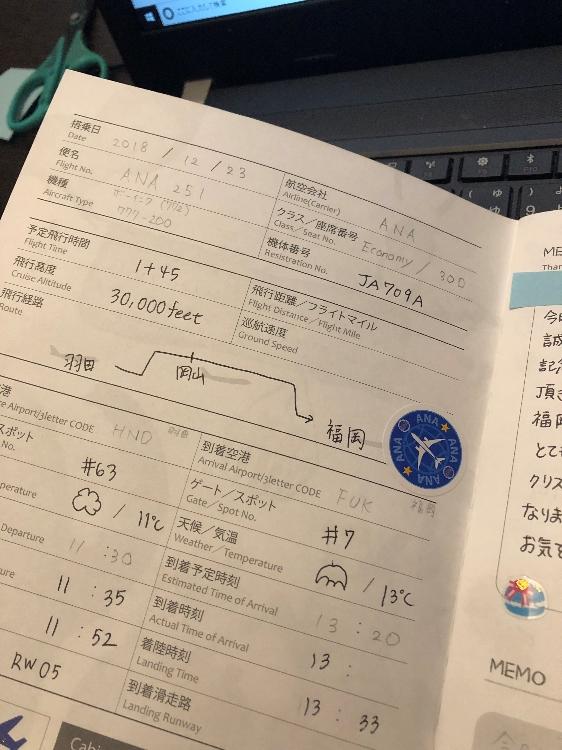 ここに入力して検索
搭乗日
Date
2018 / 12 / 23
便名
Flight No.
ANA 251
機種
Aircraft Type
777-200
航空会社
Airline(Carrier)
ANA
クラス/座席番号
Class/Seat No.
Economy / 30D
機体番号
Resistration No.
JA709A
予定飛行時間
Flight Time
1+45
飛行高度
Cruise Altitude
30,000feet
飛行経路
Route
飛行距離/フライトマイル
Flight Distance/Flight Mile
巡航速度
Ground Speed
羽田
岡山
福岡
空港
re Airport/3letter CODE
HND
スポット
No.
#63
perature
/ 11℃
Departure
11 : 30
ure
11 : 35
11 : 52
RW05
到着空港
Arrival Airport/3letter CODE
FUK
福岡
ゲート/スポット
Gate/Spot No.
#7
天候/気温
Weather/Temperature
/ 13℃
到着予定時刻
Estimated Time of Arrival
13 : 20
到着時刻
Actual Time of Arrival
13 :
着陸時刻
Landing Time
13 : 33
到着滑走路
Landing Runway
ANA
ANA
ANA
ANA
Cabi
ME
Than
今日
誠
記
頂き
福岡
とても
クリス
なりま
お気を
MEMO